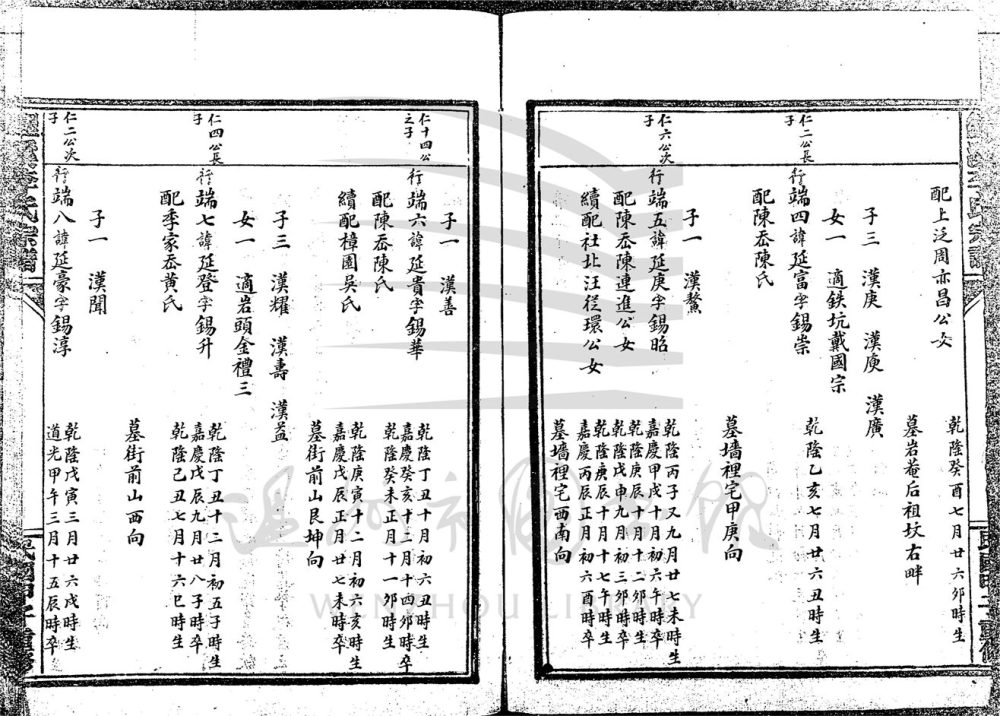 配上泛周亦昌公女　乾隆癸酉七月廿六卯時生
墓岩菴后祖坟右畔
子三　漢庚　漢庾　漢廣
女一　適鉄坑戴國宗
仁二公長子
行端四諱延富字錫崇　乾隆乙亥七月廿六丑時生
配陳岙陳氏
墓墻裡宅甲庚向
子一　漢鰲
仁六公次子
行端五諱延庚字錫昭　乾隆丙子又九月廿七未時生
嘉慶甲戌十月初六午時卒
配陳岙陳連進公女　乾隆庚辰十月十二卯時生
乾隆戊申九月初三卯時卒
續配社北汪從環公女　乾隆庚辰十月十七午時生
嘉慶丙辰正月初六酉時卒
墓墻裡宅西南向
子一　漢善
仁十四公之子
行端六諱延貴字錫華　乾隆丁丑十月初六丑時生
嘉慶癸亥十二月十四卯時卒
配陳岙陳氏　乾隆癸未正月十一卯時生
續配樟園吳氏　乾隆庚寅十二月初六亥時生
嘉慶戊辰正月廿七未時卒
墓街前山艮坤向
子三　漢耀　漢壽　漢益
女一　適岩頭金禮三
仁四公長子
行端七諱延登字錫升　乾隆丁丑十二月初五子時生
嘉慶戊辰九月廿八子時卒
配季家岙黃氏　乾隆己丑七月十六巳時生
墓街前山西向
子一　漢聞
仁二公次子
行端八諱延豪字錫淳　乾隆戊寅三月廿六戌時生
道光甲午三月十五辰時卒
溫州市圖書館
WENZHOU LIBRARY